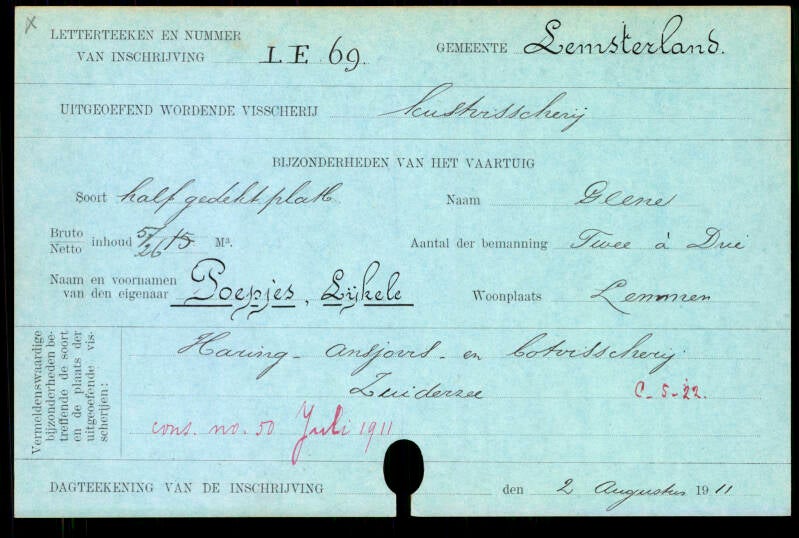 x
LETTERTEEKEN EN NUMMER VAN INSCHRIJVING LE 69. GEMEENTE Lemsterland.
UITGEOEFEND WORDENDE VISSCHERIJ kustvisscherij
BIJZONDERHEDEN VAN HET VAARTUIG
Soort half gedekt platb. Naam Geene
Bruto Netto inhoud 5/26 15 M³. Aantal der bemanning Twee à Drie
Naam en voornamen van den eigenaar Poepjes, Lijkele Woonplaats Lemmer
Vermeldenswaardige bijzonderheden betreffende de soort en de plaats der uitgeoefende visscherijen:
Haring- ansjovis- en botvisscherij
Zuiderzee C-5-22.
cons. no. 50 Juli 1911
DAGTEEKENING VAN DE INSCHRIJVING den 2 Augustus 1911